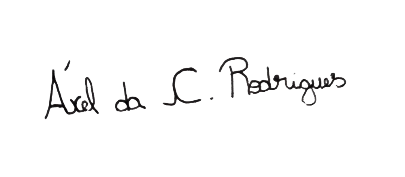 Áxel da C. Rodrigues